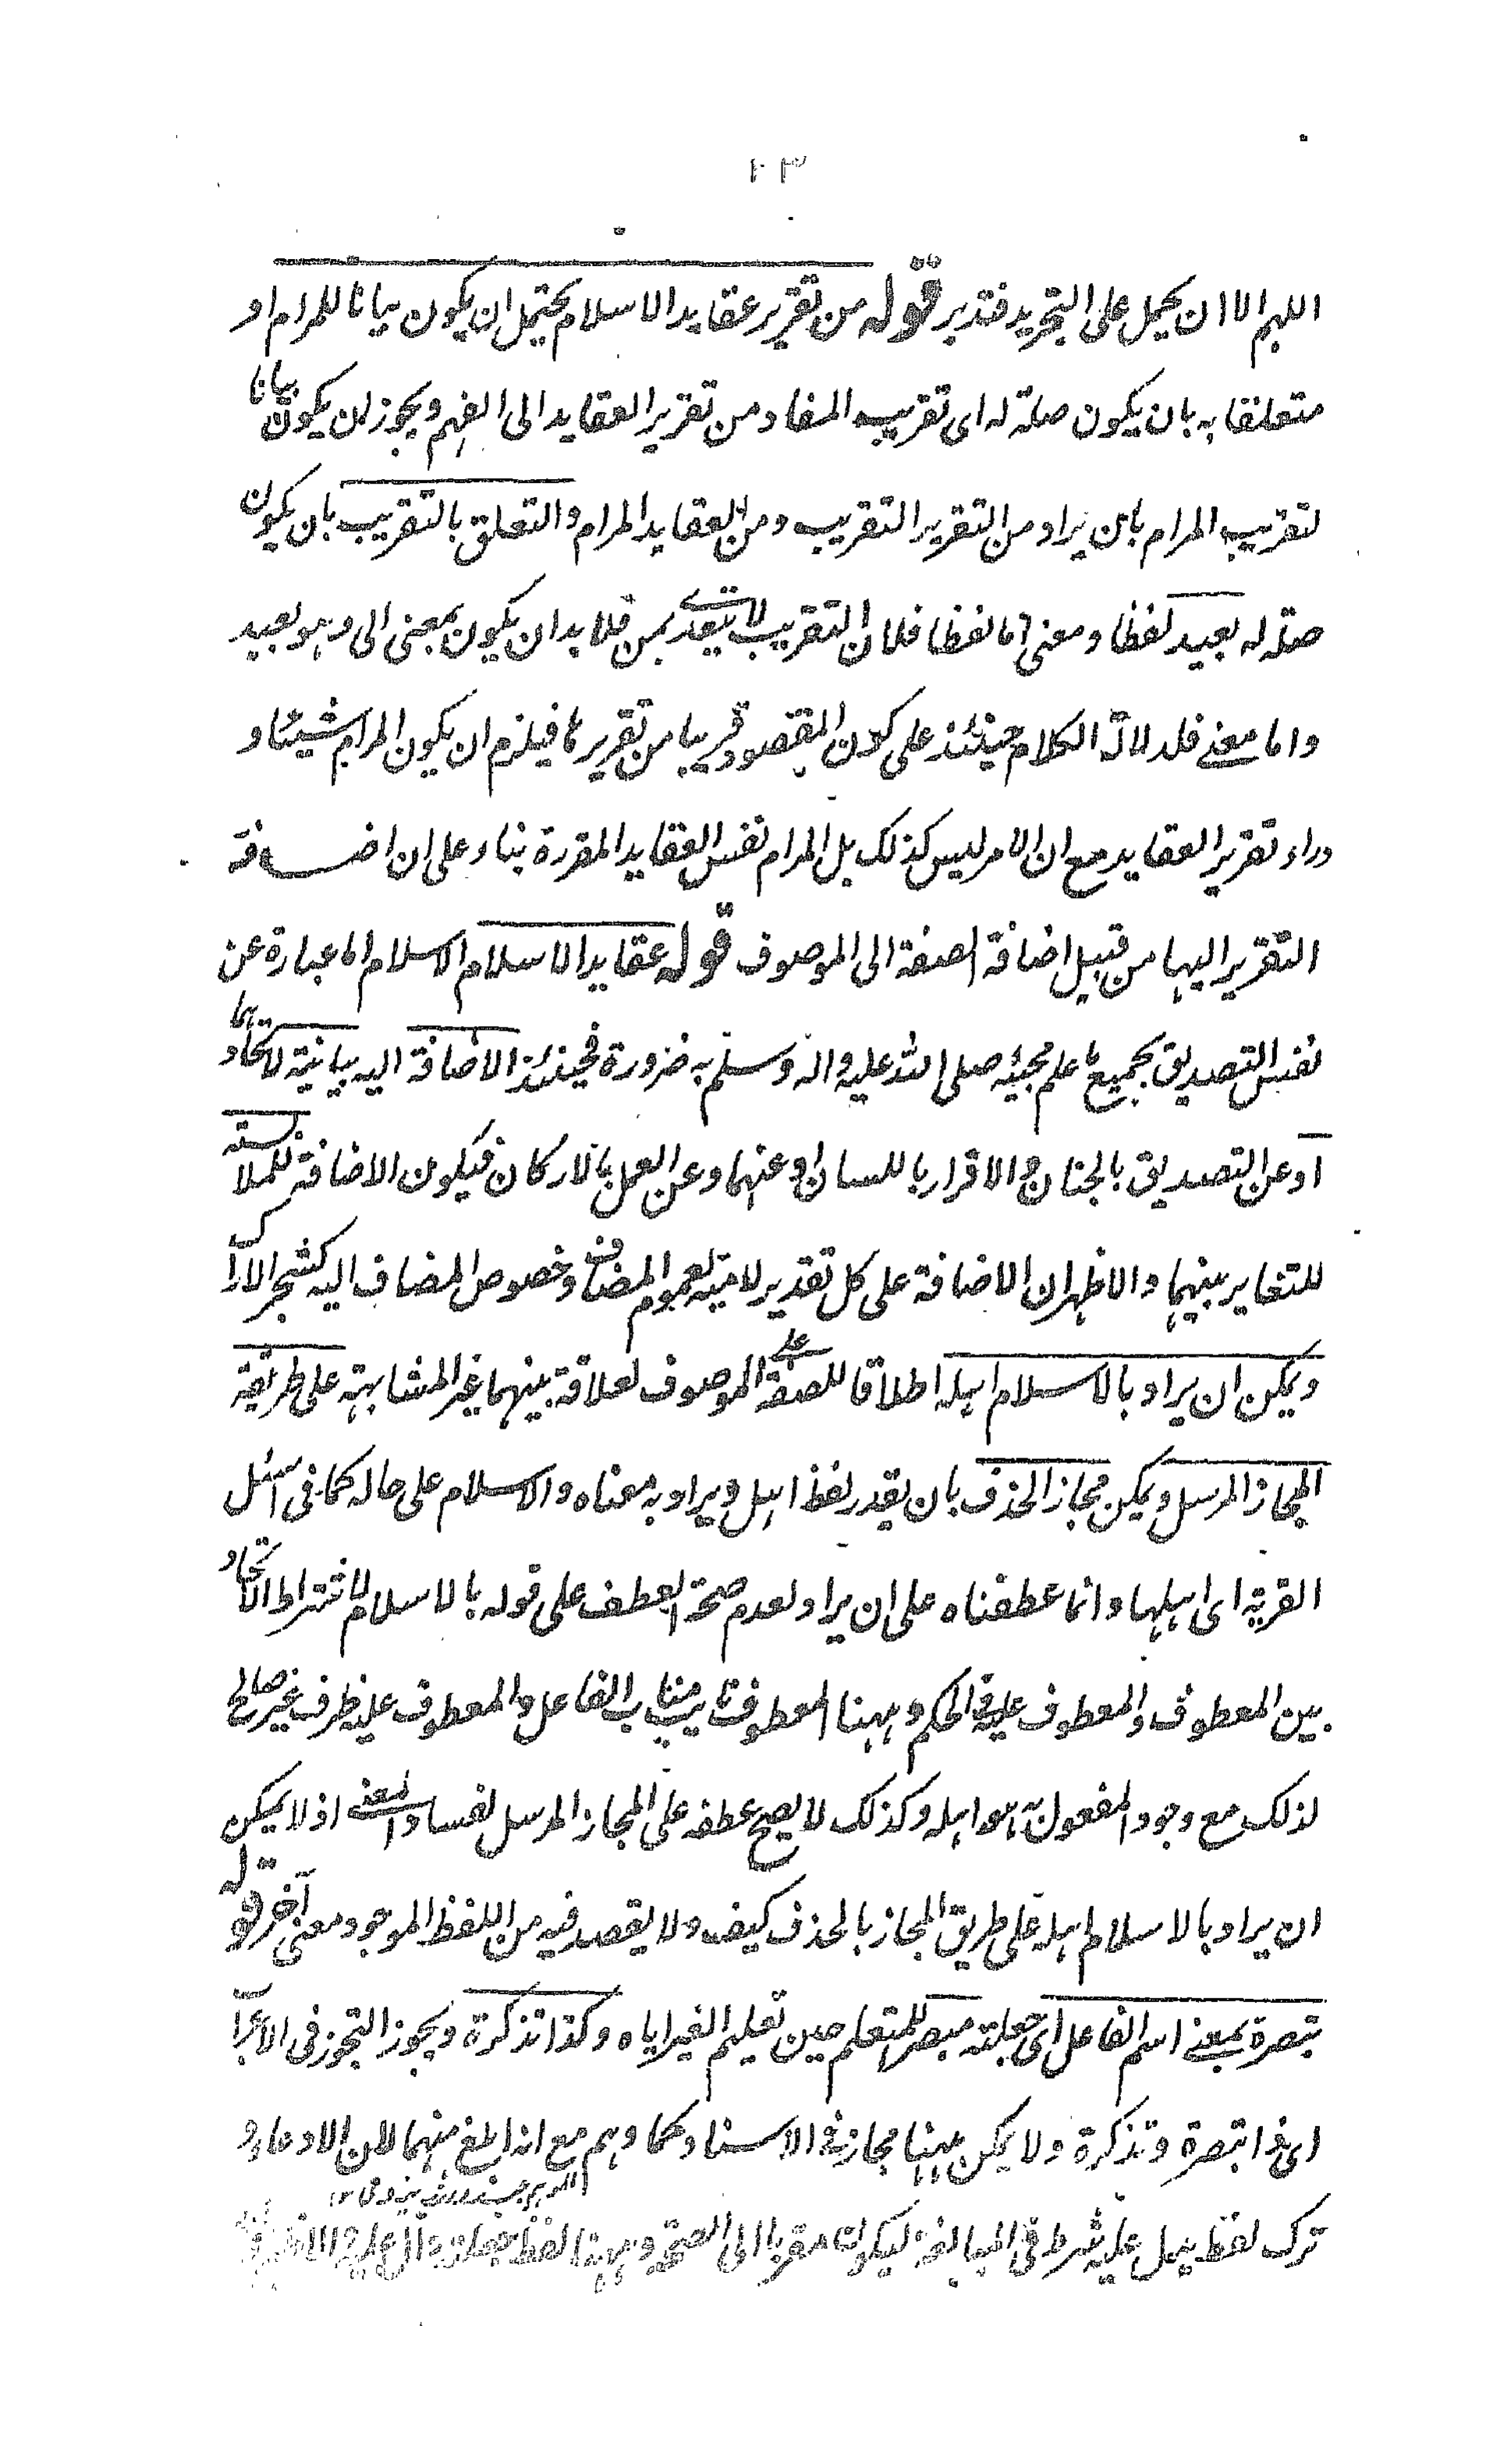 ٢٣
اللهم الا ان يحمل على التجريد فتدبر قوله من تقرير عقايد الاسلام يحتمل ان يكون بيانا للمرام او
متعلقا به بان يكون صلة له اى تقريب المفاد من تقرير العقايد الى الفهم ويجوز ان يكون بيانا
لتقريب المرام بان يراد من التقرير التقريب ومن العقايد المرام والتعلق بالتقريب بان يكون
صلة له بعيد لفظا ومعنى اما لفظا فلان التقريب لا يتعدى بمن فلا بد ان يكون بمعنى الى وهو بعيد
واما معنى فلدلالة الكلام حينئذ على كون المقصود قريبا من تقريرها فيلزم ان يكون المرام شيئا و
وراء تقرير العقايد مع ان الامر ليس كذلك بل المرام نفس العقايد المقررة بناء على ان اضافة
التقرير اليها من قبيل اضافة الصفة الى الموصوف قوله عقايد الاسلام الاسلام اما عبارة عن
نفس التصديق بجميع ما علم مجيئه صلى الله عليه واله وسلم به ضرورة فحينئذ الاضافة اليه بيانية لاتحادهما
او عن التصديق بالجنان والاقرار باللسان او عنهما وعن العمل بالاركان فيكون الاضافة للملابسة
للتغاير بينهما والاظهر ان الاضافة على كل تقدير لامية لعموم المضاف وخصوص المضاف اليه كشجر الاراك
ويمكن ان يراد بالاسلام اهله اطلاقا للصفة على الموصوف لعلاقة بينهما غير المشابهة على طريقة
المجاز المرسل ويمكن مجاز الحذف بان يقدر لفظ اهل ويراد به معناه والاسلام على حاله كما فى اسئل
القرية اى اهلها وانما عطفناه على ان يراد لعدم صحة العطف على قوله بالاسلام لاشتراط الاتحاد
بين المعطوف والمعطوف عليه فى الحكم وههنا المعطوف نايب مناب الفاعل والمعطوف عليه ظرف غير صالح
لذلك مع وجود المفعول به هو اهله وكذلك لا يصح عطفه على المجاز المرسل لفساد المعنى اذ لا يمكن
ان يراد بالاسلام اهله على طريق المجاز بالحذف كيف ولا يقصد فيه من اللفظ الموجود معنى آخر قوله
تبصرة بمعنى اسم الفاعل اى جعلته مبصرا للمتعلم حين تعليم الغير اياه وكذا تذكرة ويجوز التجوز فى الاعراب
اى ذا تبصرة وتذكرة ولا يمكن ههنا مجاز فى الاسناد كما وهم مع انه ابلغ منهما لان الادعاء و
ترك لفظ يدل عليه شرط فى المبالغة ليكون مقربا الى الصحة وههنا لفظ جعلته دال عليه